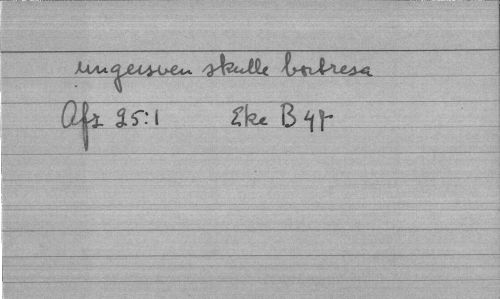 ungersven skulle bortresa
Afz 25:1 Eke B 47